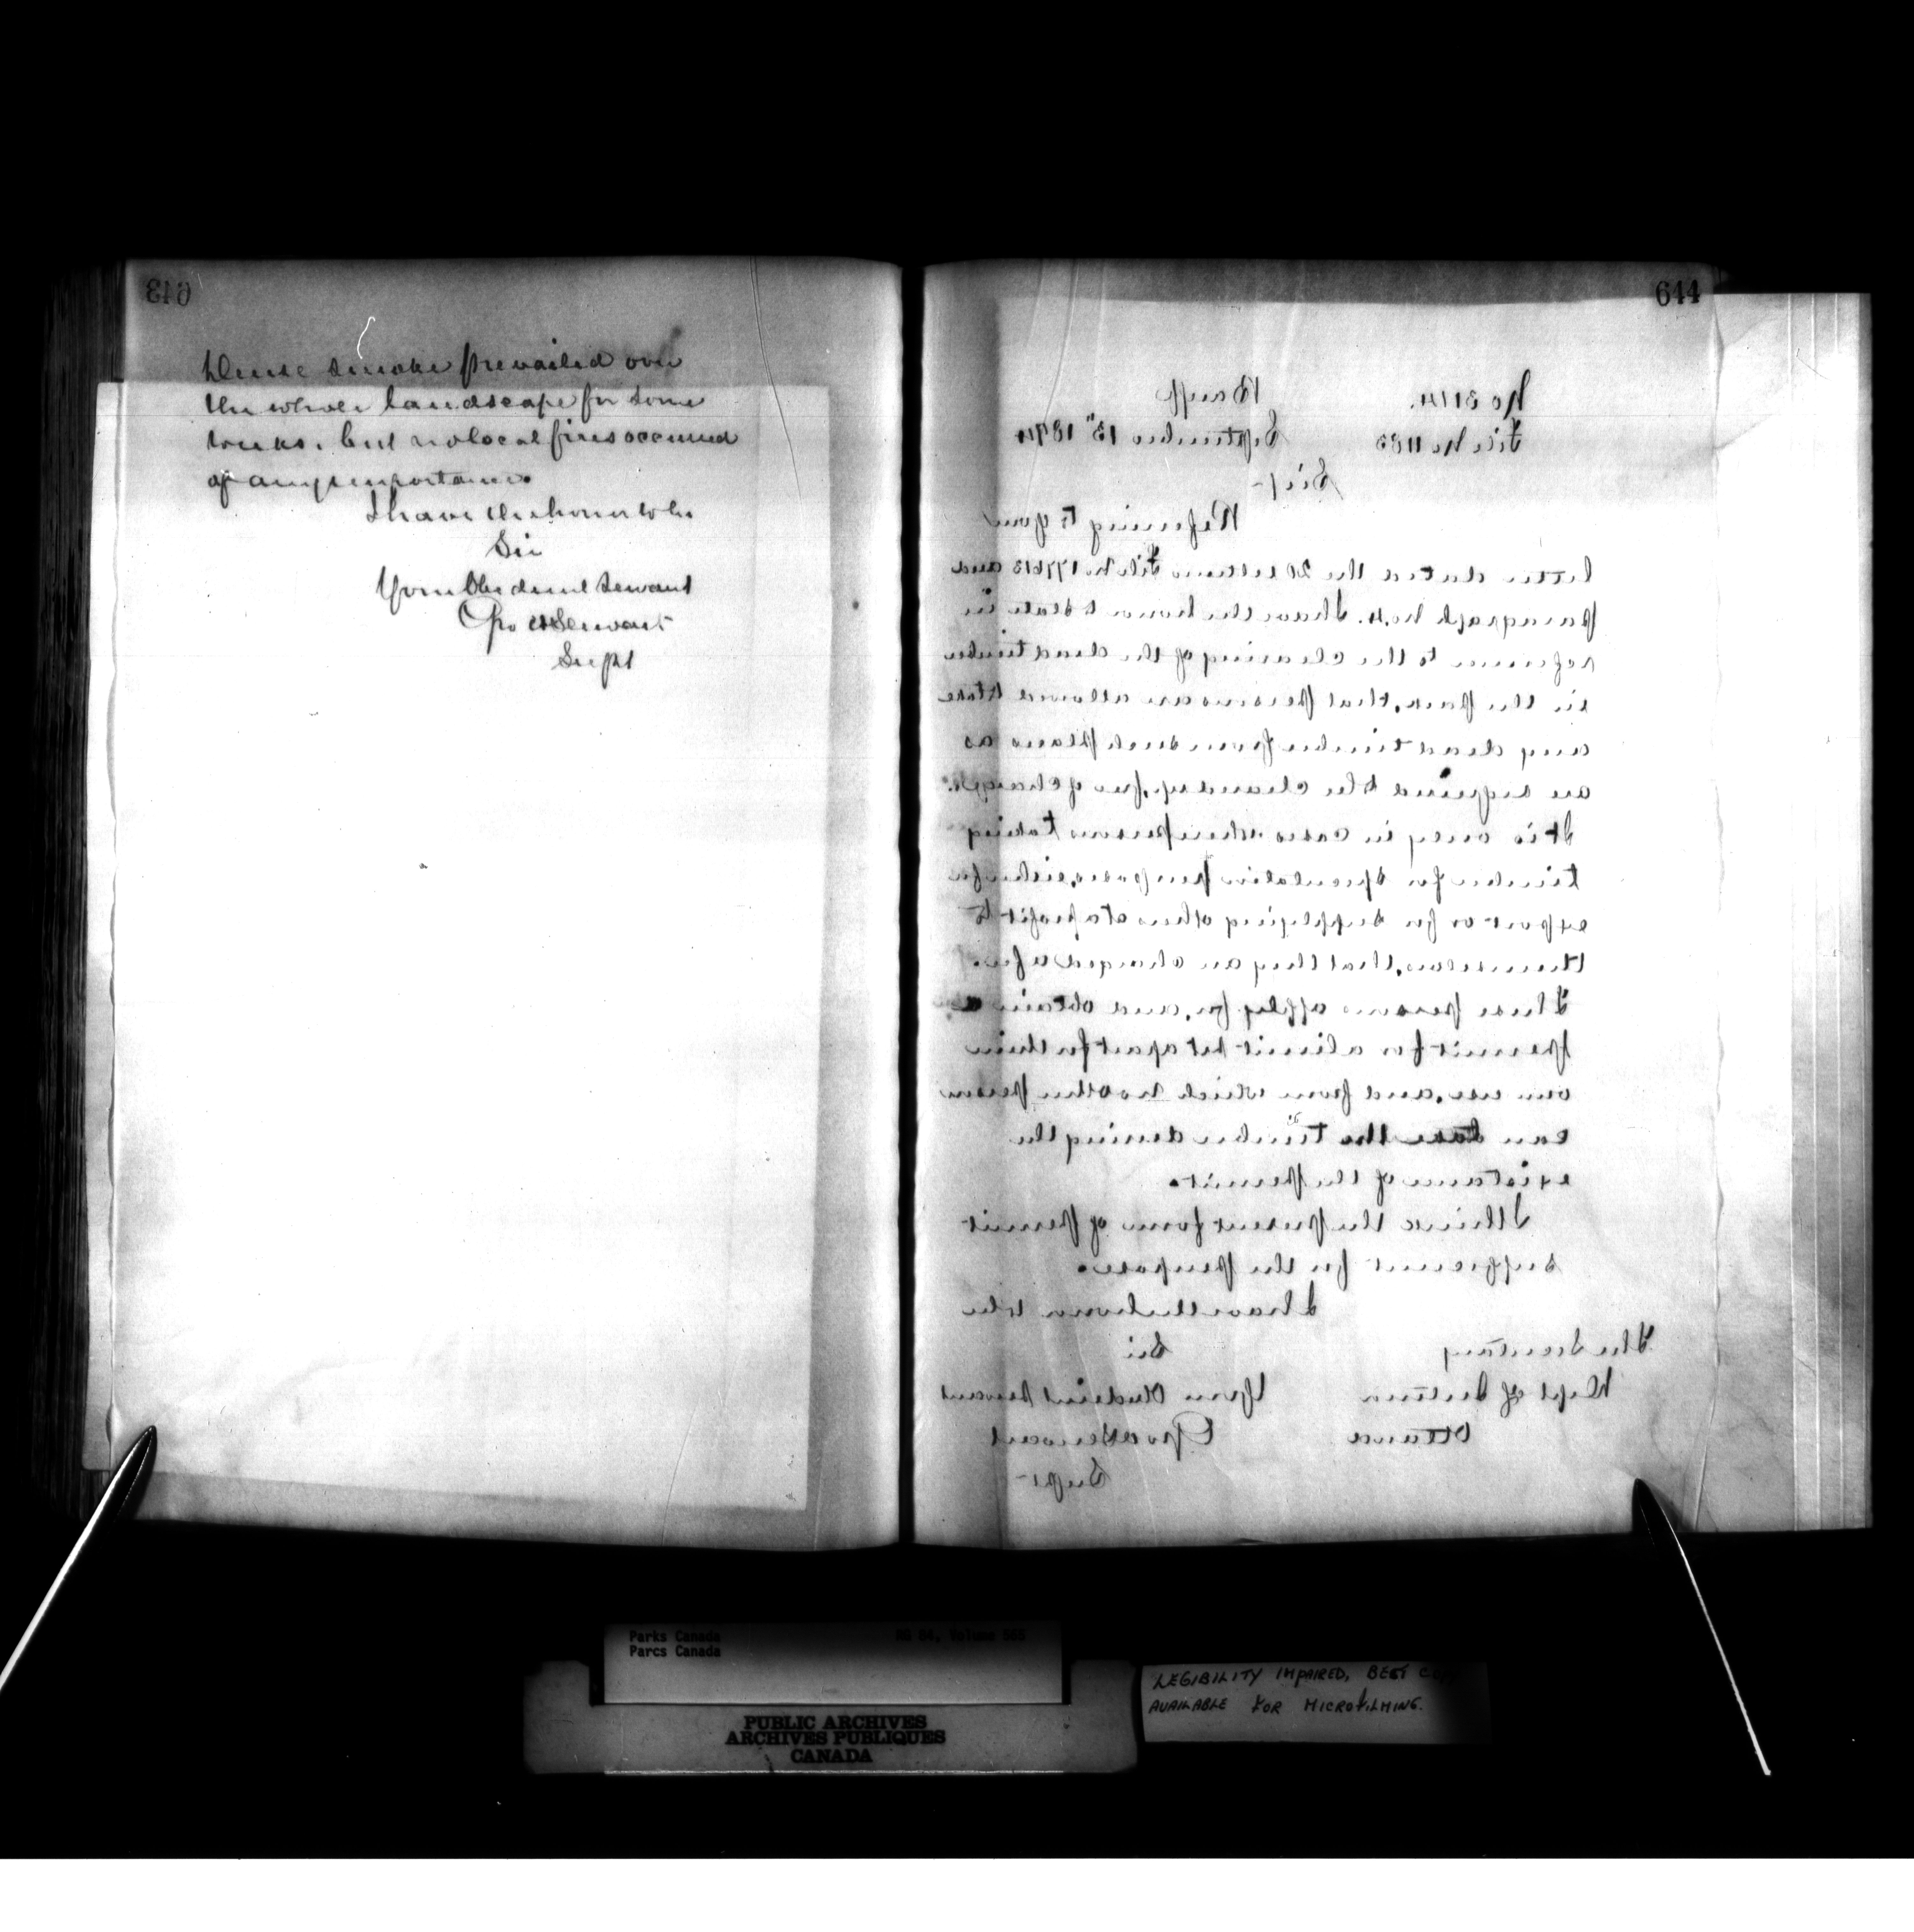 643
Dense smoke prevailed over
the whole landscape for some
weeks, but no local fires occurred
of any importance.
I have the honor to be
Sir
Your Obedient Servant
Geo A Stewart
Supt
644
No 3114. Banff
File No 1183 September 13th 1894
Sir,-
Referring to your
letter dated the 20 ultimo File No 177613 and
paragraph No. 4. I have the honor to state in
reference to the clearing of the dead timber
in the park, that persons are allowed to take
any dead timber from such places as
are required to be cleaned up, free of charge.
It is only in cases where persons taking
timber for speculative purposes, either for
export or for supplying others at a profit to
themselves, that they are charged a fee.
These persons apply for, and obtain a
permit for a limit set apart for their
own use, and from which no other person
can take the timber during the
existance of the permit.
I think the present form of permit
sufficient for the purpose.
I have the honor to be
The Secretary Sir
Dept of Interior Your Obedient Servant
Ottawa Geo A Stewart
Supt-
Parks Canada RG 84, Volume
Parcs Canada
PUBLIC ARCHIVES
ARCHIVES PUBLIQUES
CANADA
LEGIBILITY IMPAIRED, BEST COPY
AVAILABLE FOR MICROFILMING.